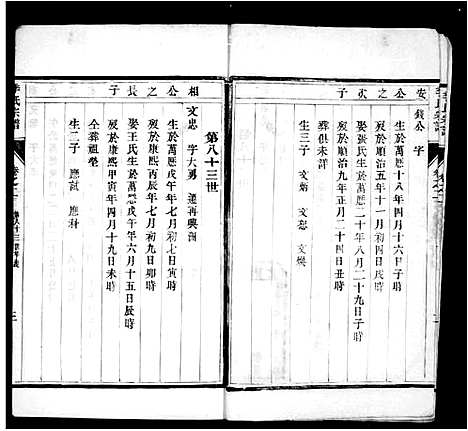 安公之次子
錢公 字
生於萬曆十八年四月十六日子時
歿於順治五年十一月初四日戌時
娶張氏生於萬曆二十年八月二十九日子時
歿於順治九年正月二十四日丑時
葬俱未詳
生三子 文忠 文恕 文
第八十三世
相公之長子
文忠 字大勇 遷再興溝
生於萬曆戊午年七月初七日寅時
歿於康熙丙辰年七月初九日卯時
娶王氏生於萬曆 年六月十五日辰時
歿於康熙甲寅年四月十九日未時
仝葬祖塋
生二子 應試 應科
李氏宗譜
卷之